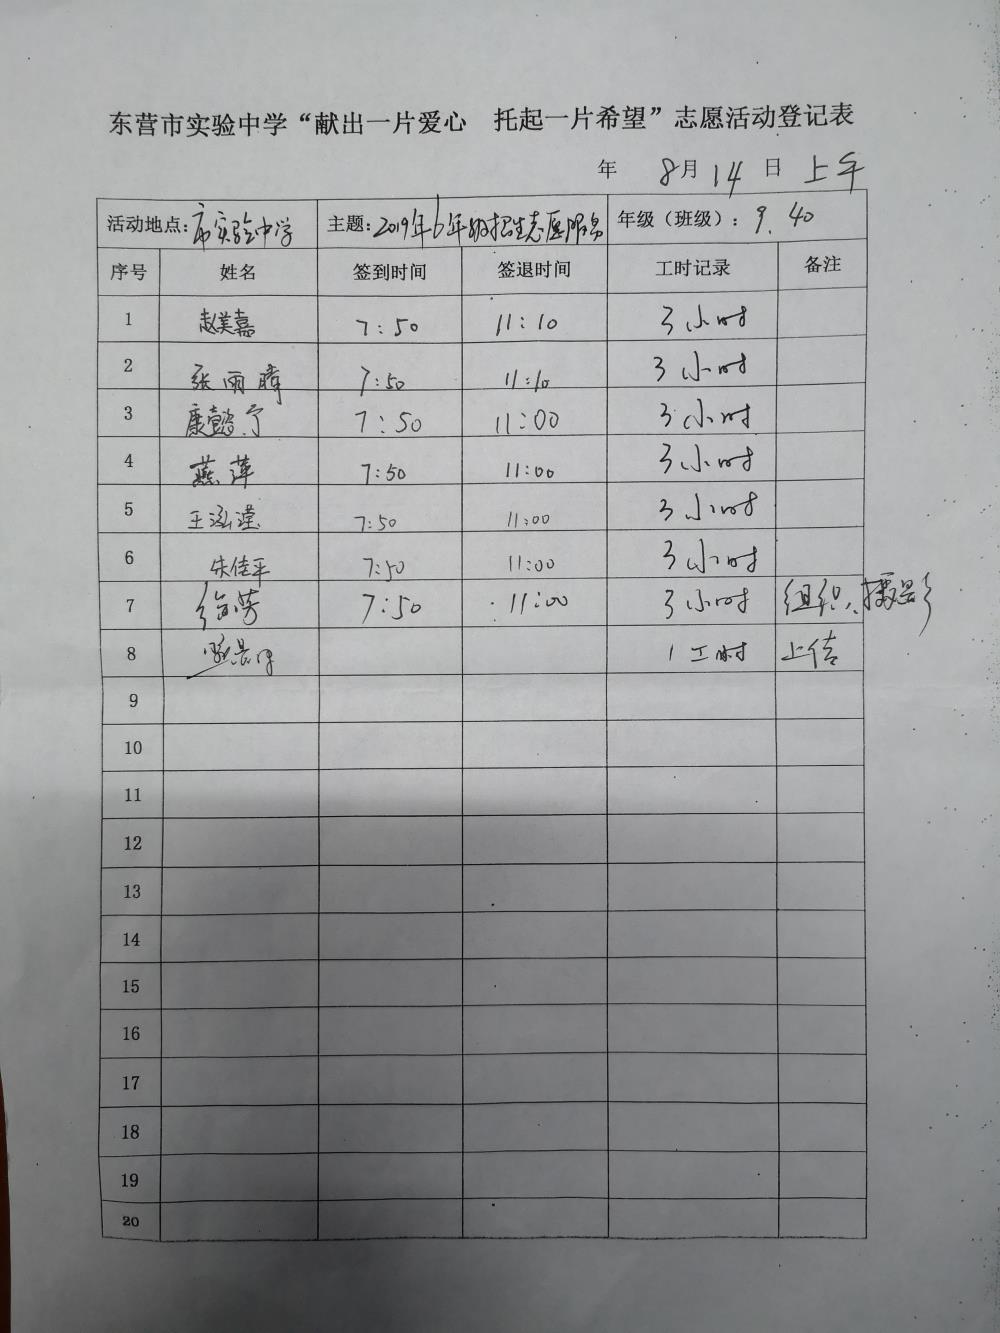 东营市实验中学“献出一片爱心 托起一片希望”志愿活动登记表
年 8月14日 上午
活动地点：市实验中学 主题：2019年6年级招生志愿服务 年级（班级）：9.40
序号 姓名 签到时间 签退时间 工时记录 备注
1 赵美嘉 7:50 11:10 3小时
2 张雨暐 7:50 11:10 3小时
3 康懿宁 7:50 11:00 3小时
4 燕萍 7:50 11:00 3小时
5 王泓滢 7:50 11:00 3小时
6 朱佳平 7:50 11:00 3小时
7 徐芳 7:50 11:00 3小时 组织、摄影
8 1工时 上传
9
10
11
12
13
14
15
16
17
18
19
20